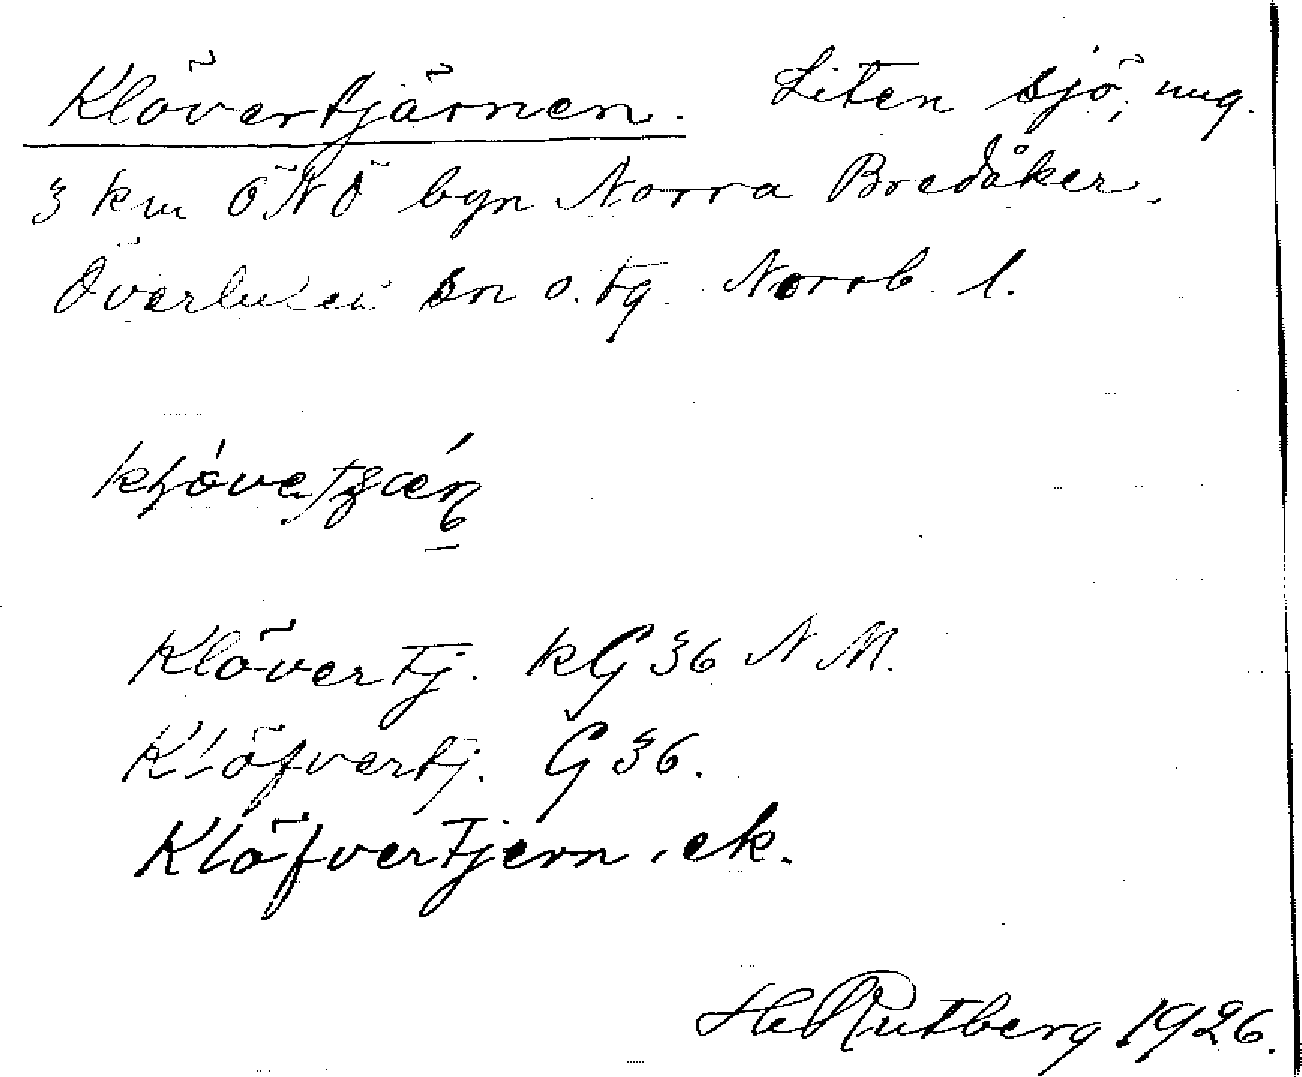 Klövertjärnen. Liten sjö, ung.
3 km ÖNÖ byn Norra Bredåker,
Överluleå sn o. tg. Norrb. l.
Klövertj. kG 36 N M.
Klöfvertj. G 36.
Klöfvertjern. ek.
H Rutberg 1926.